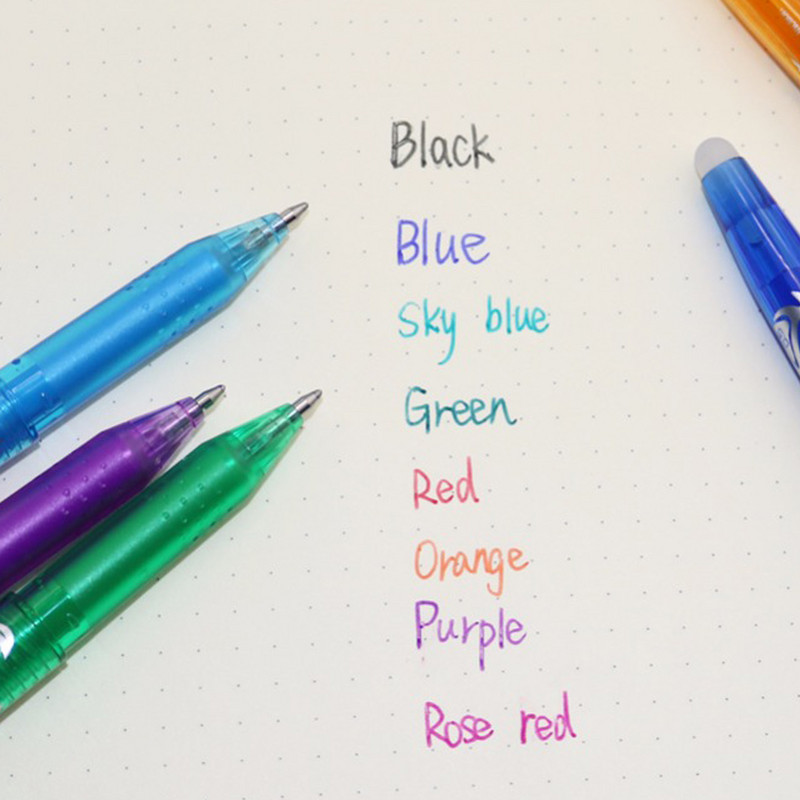 Black
Blue
Sky blue
Green
Red
Orange
Purple
Rose red